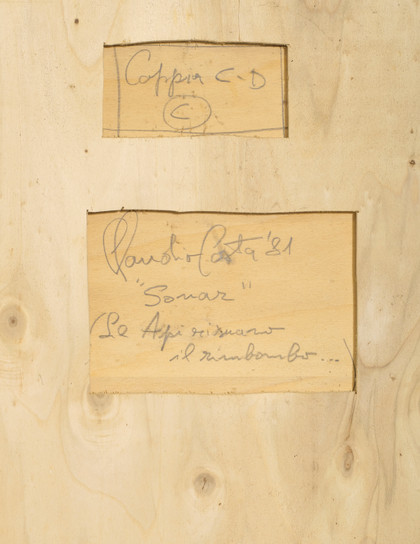 Coppia C-D
C
Claudio Costa '81
"Sonar"
(Le Api risuano
il rimbombo...)